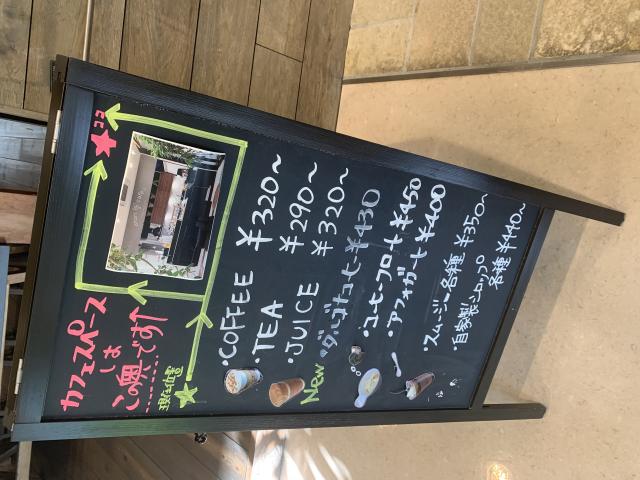 カフェスペース
は
この奥です↑
現在位置
ココ
・COFFEE ¥320〜
・TEA ¥290〜
・JUICE ¥320〜
New ダルゴナコーヒー ¥430
・コーヒーフロート ¥450
・アフォガート ¥400
・スムージー各種 ¥350〜
・自家製シロップ
各種 ¥440〜